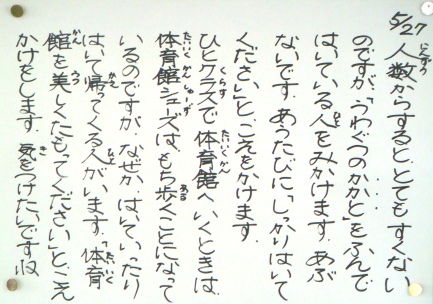 5/27 人数からすると、とてもすくない
のですが、「うわぐつのかかと」をふんで
はいている人をみかけます。あぶ
ないです。あうたびに「しっかりはいて
ください」と、こえをかけます。
ひとクラスで体育館へいくときは、
体育館シューズは、もち歩くことになって
いるのですが、なぜか、はいていったり
はいて帰ってくる人がいます。「体育
館を美しくたもってください」と、こえ
かけをします。気をつけたいですね。